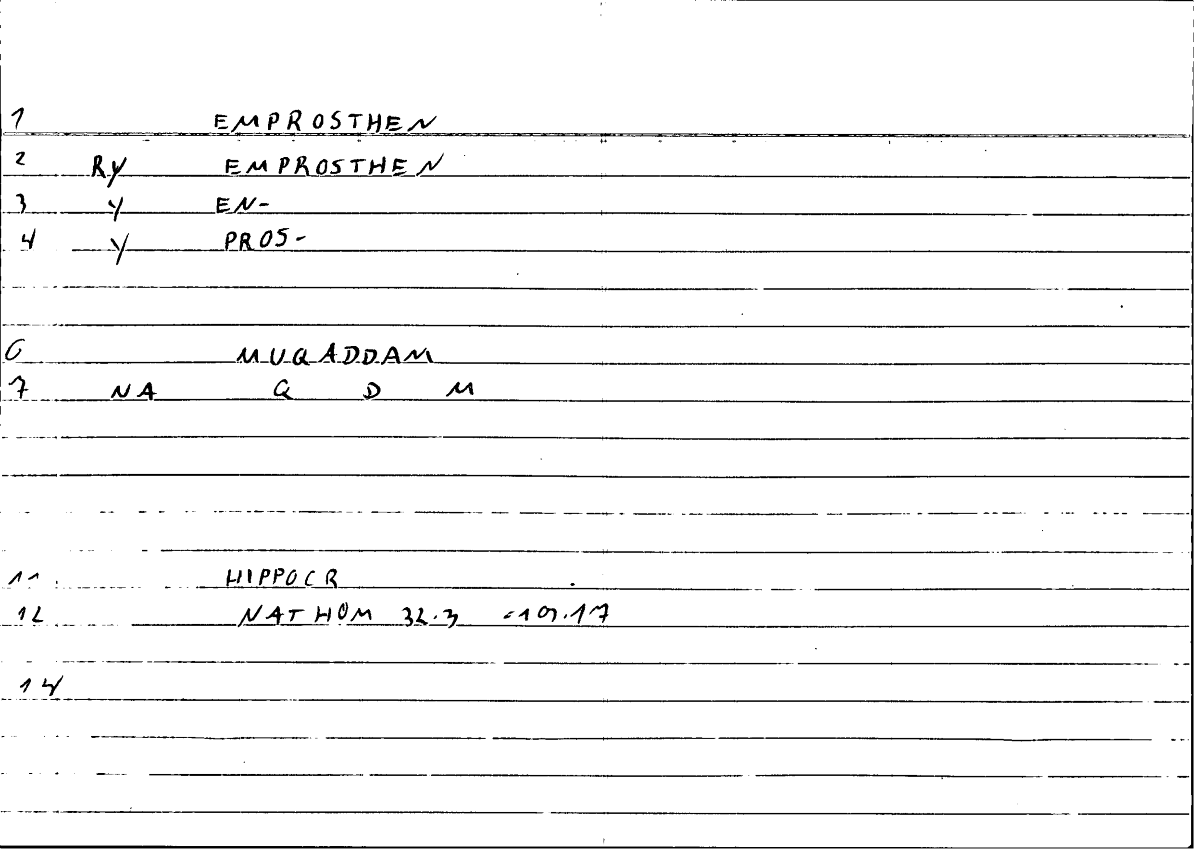 1 EMPROSTHEN
2 RY EMPROSTHEN
3 Y EN-
4 Y PROS-
6 MUQADDAM
7 NA Q D M
11 HIPPOCR
12 NAT HOM 32.3 =19.17
14